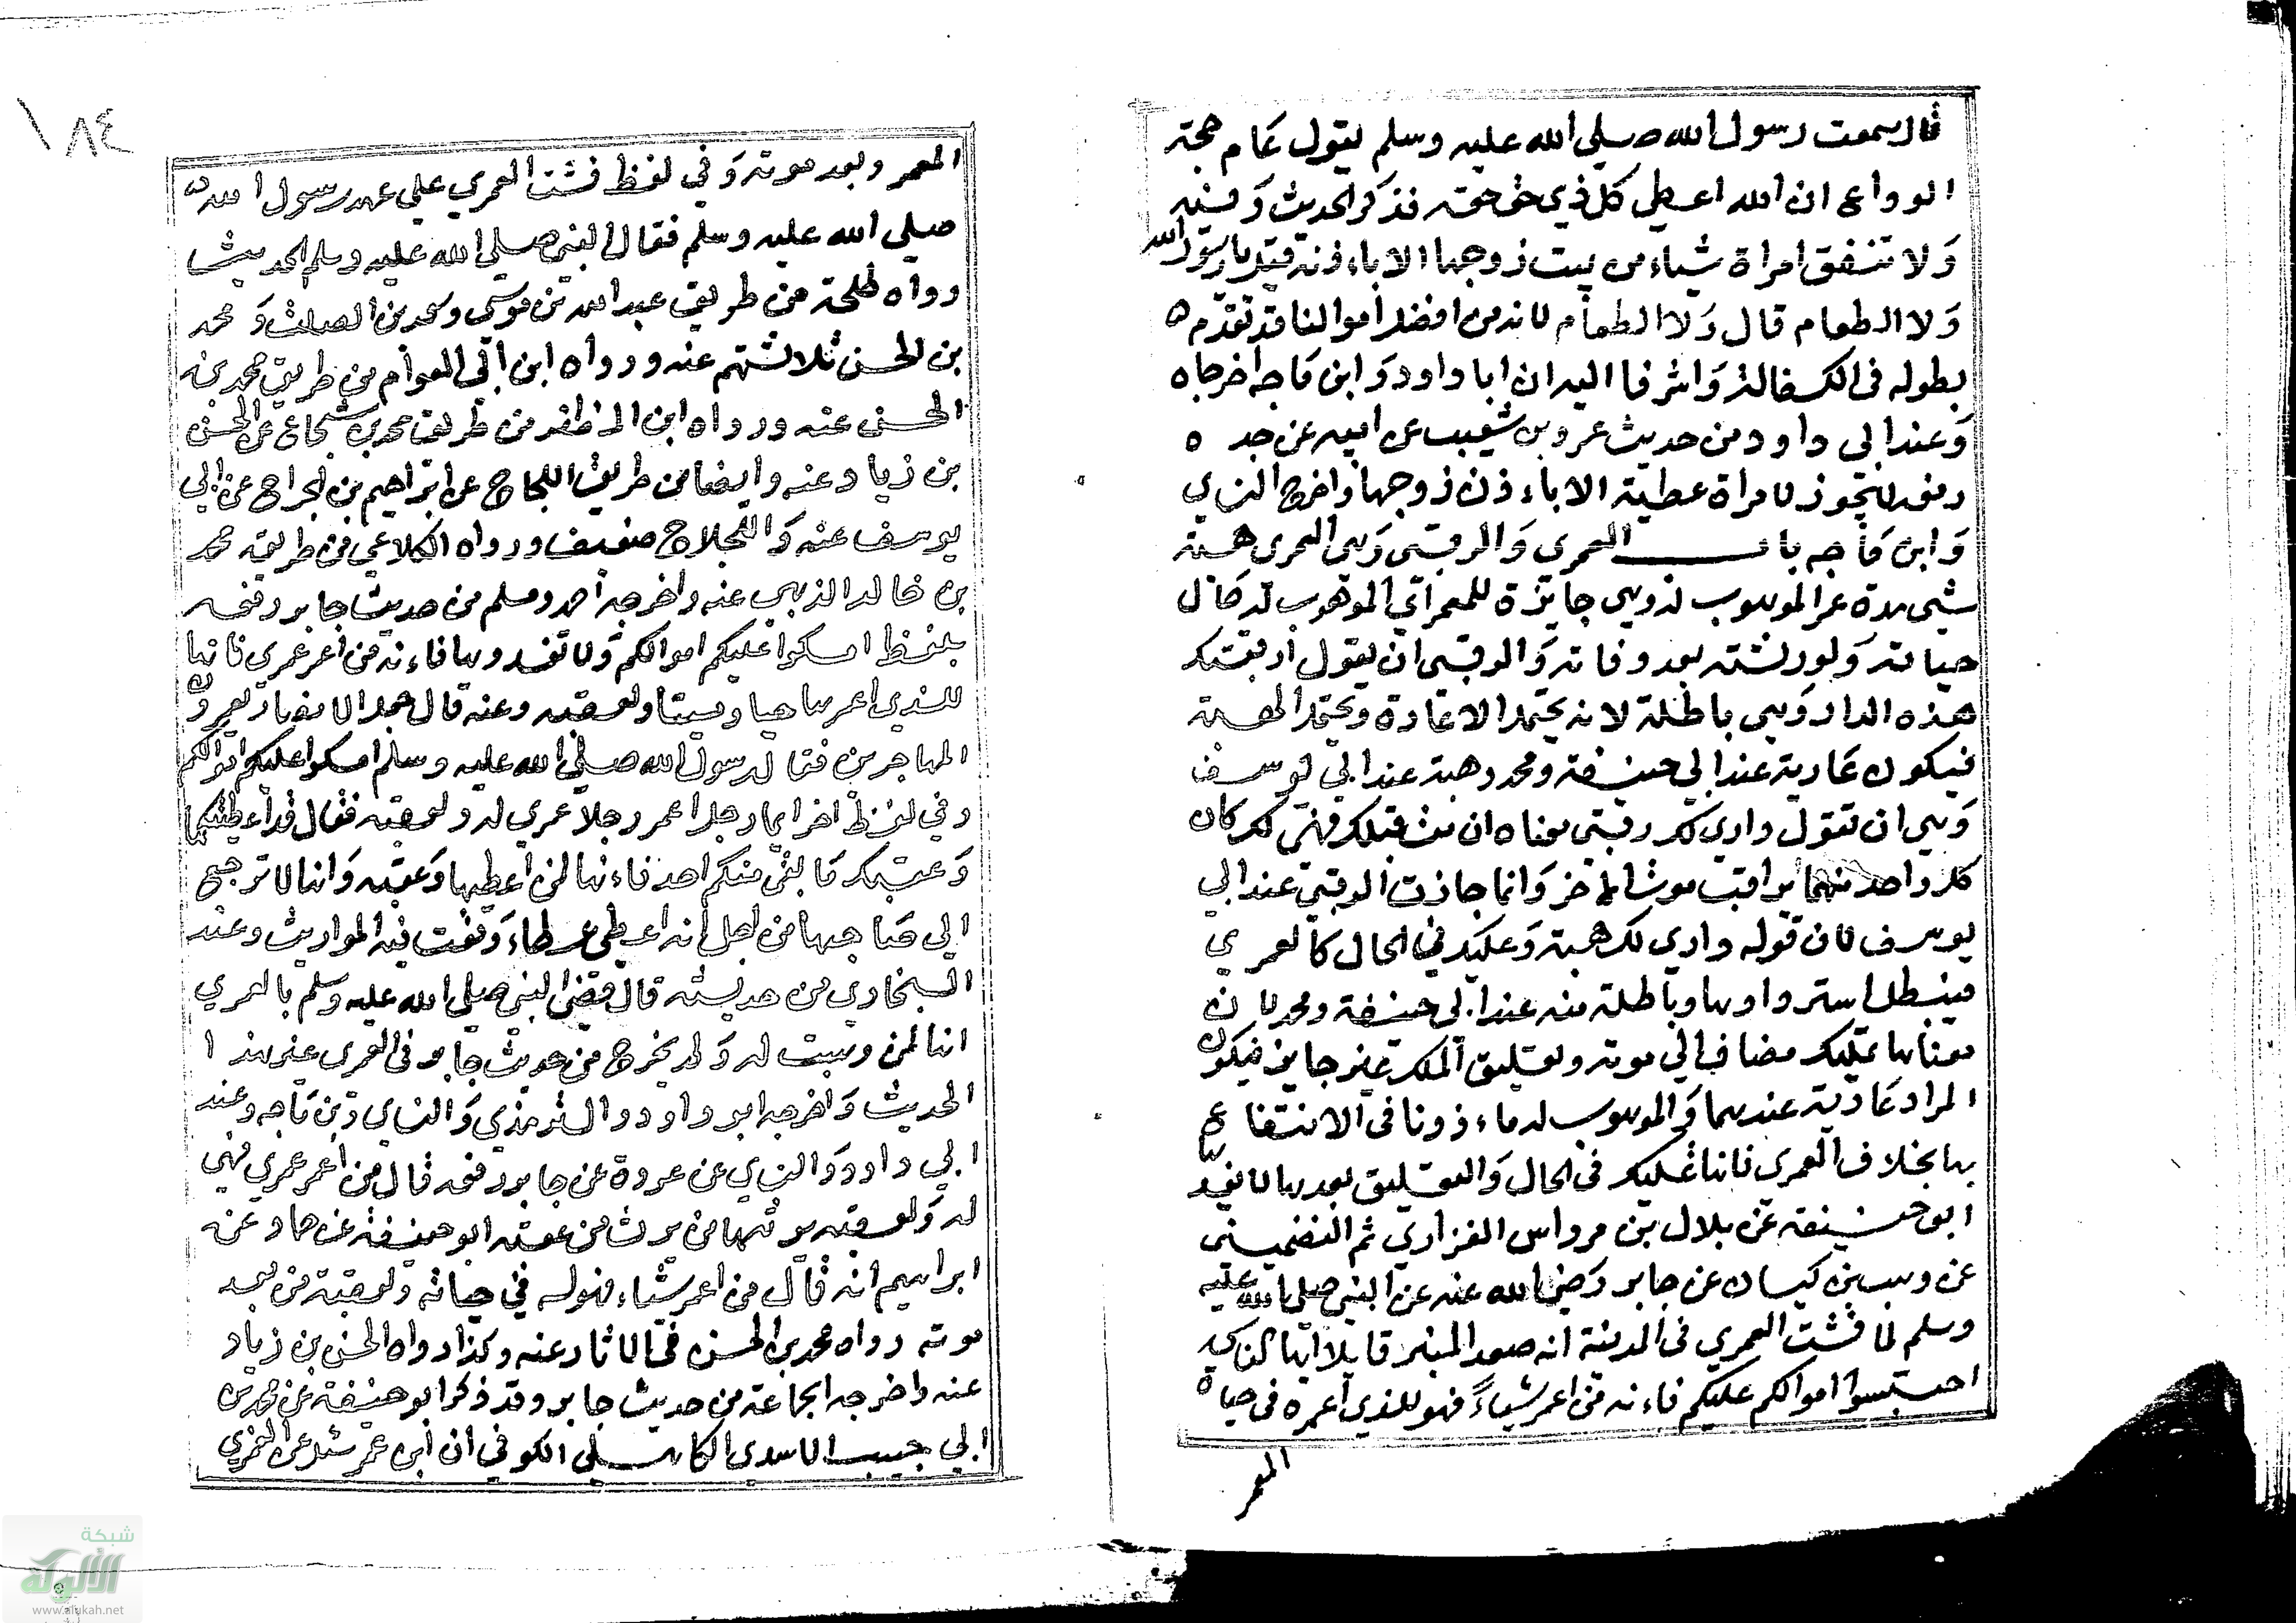 قال سمعت رسول الله صلي الله عليه وسلم يقول عام حجة
الوداع ان الله اعطي كل ذي حق حقه فذكر الحديث وفيه
ولا تنفق امراة شياء من بيت زوجها الا باء ذنه قيل يا رسول الله
ولا الطعام قال ولا الطعام لانه من افضل اموالنا قد تقدم ه
بطوله في الكفالة واشرفا اليه ان ابا داود وابن ماجه اخرجاه
وعند ابي داود من حديث عمرو بن شعيب عن ابيه عن جده
رفعه لا يجوز لامراة عطية الا باء ذن زوجها واخرج النساي
وابن ماجه باب العمري والرقبى وهي العمرى هبة
شي مدة عمر الموهوب له وهي جايزة للمعمر اي الموهوب له حال
حياته ولورثته بعد وفاته والرقبى ان يقول ارقبتك
هذه الدار وهي باطلة لانه يحتمل الاعارة ويحتمل الهبة
فيكون عارية عند ابي حنيفة ومحمد وهبة عند ابي يوسف
وهي ان تقول داري لك رقبى معناه ان مت قبلك فهي لك كان
كل واحد منهما يراقب موت الاخر وانما جازت الرقبى عند ابي
يوسف لان قوله داري لك هبة وعليك في الحال كالعمري
فيبطل استردادها وباطلة منه عند ابي حنيفة ومحمد لان
معناها تمليك مضاف الي موته وتعليق الملك غير جايز فيكون
المراد عارية عندهما والموهوب له ماء ذونا في الانتفاع
بها بخلاف العمرى فانها تمليك في الحال والتعليق بعدها لا يفيد
ابو حنيفة عن بلال بن مرداس الفزاري ثم النصيبيني
عن وهب بن كيسان عن جابر رضي الله عنه عن النبي صلي الله عليه
وسلم لما فشت العمري في المدينة انه صعد المنبر قايلا ايها الناس
احبسوا اموالكم عليكم فاء نه من اعمر شياء فهو للذي اعمره في حياة
المعمر
١٨٤
المعمر وبعد موته وفي لفظ فشت العمري علي عهد رسول الله
صلي الله عليه وسلم فقال النبي صلي الله عليه وسلم الحديث
رواه طلحة من طريق عبد الله بن موسى ومحمد بن الصلت ومحمد
بن الحسن ثلاثتهم عنه ورواه ابن ابي العوام من طريق محمد بن
الحسن عنه ورواه ابن المظفر من طريق محمد بن شجاع عن الحسن
بن زياد عنه وايضا من طريق اللجلاج عن ابراهيم بن الجراح عن ابي
يوسف عنه واللجلاج ضعيف ورواه الكلاعي من طريق محمد
بن خالد الذهبي عنه واخرجه احمد ومسلم من حديث جابر رفعه
بلفظ امسكوا عليكم اموالكم ولا تفسدوها فاء نه من اعمر عمري فانها
للذي اعمرها حيا وميتا ولعقبه وعنه قال جعل الانصار يعمرون
المهاجرين فقال رسول الله صلي الله عليه وسلم امسكوا عليكم اموالكم
وفي لفظ اخر ايما رجل اعمر رجلا عمري له ولعقبه فقال قد اعطيتكها
وعقبك ما بقي منكم احد فاء نها لمن اعطيها وعقبه وانها لا ترجع
الي صاحبها من اجل انه اعطي عطاء وقعت فيه المواريث وعند
البخاري من حديثه قال قضي النبي صلي الله عليه وسلم بالعمري
انها لمن وهبت له ولم يخرج من حديث جابر في العمرى غير هذا
الحديث واخرجه ابو داود والترمذي والنساي وابن ماجه وعند
ابي داود والنساي عن عروة عن جابر رفعه قال من اعمر عمري فهي
له ولعقبه يرثها من يرث من عقبه ابو حنيفة عن حماد عن
ابراهيم انه قال من اعمر شياء فهو له في حياته ولعقبه من بعد
موته رواه محمد بن الحسن في الاثار عنه وكذا رواه الحسن بن زياد
عنه واخرجه الجماعة من حديث جابر وقد ذكر ابو حنيفة عن محمد بن
ابي حبيب الاسدي الكاهلي الكوفي ان ابن عمر سئل عن العمري
شبكة
الألوكة
www.alukah.net